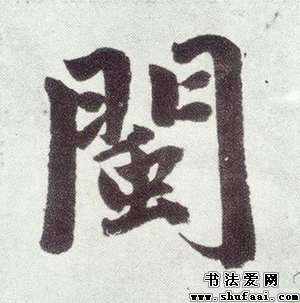 閩
书法爱网
www.shufaai.com